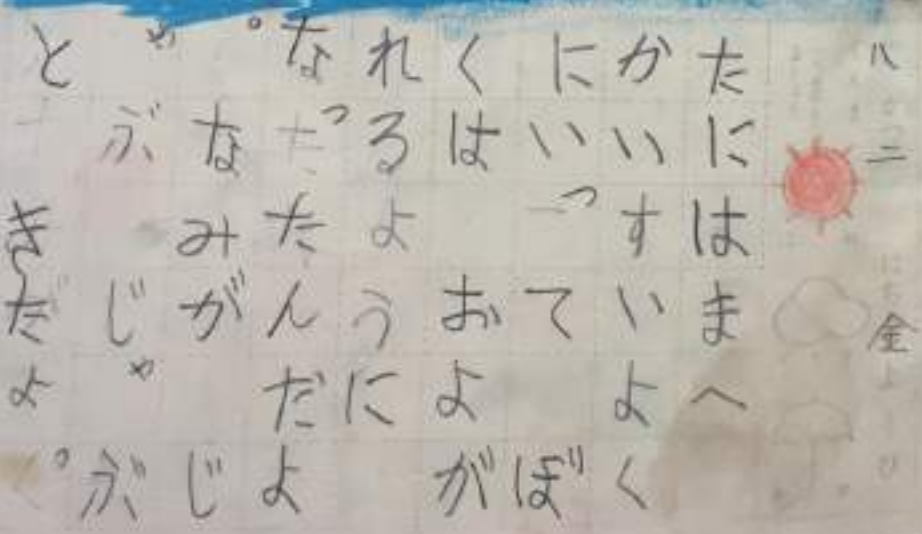 八 二にち 金ようび
たにはまへ
かいすいよく
にいって ぼ
くは およが
れるように
なったんだよ
。なみが じ
ゃぶ じゃぶ
と きたよ。